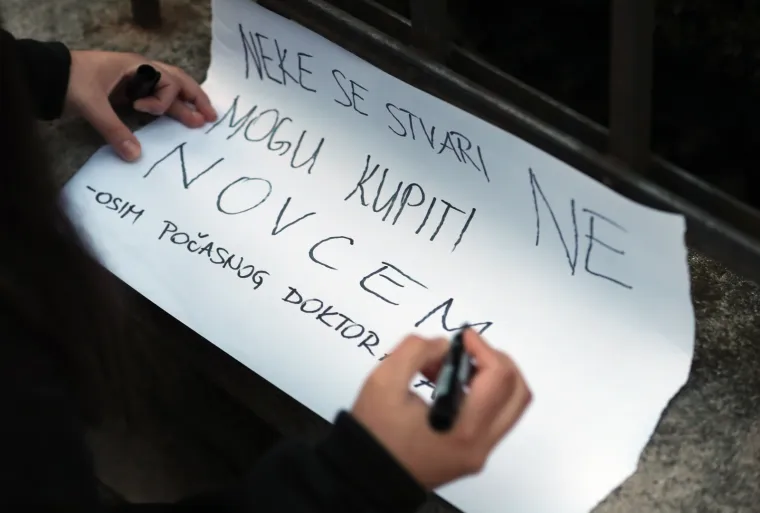 NEKE SE STVARI NE
MOGU KUPITI
NOVCEM
-OSIM POČASNOG